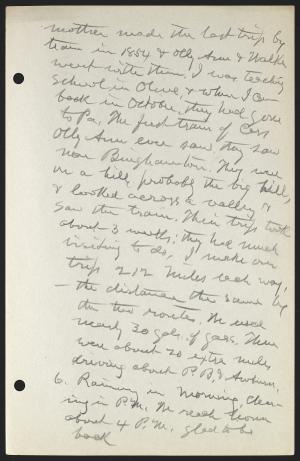 mother made the last trip by
team in 1854 & Olly Ann & Walker
went with them. I was teaching
school in Olive, & when I came
back in October, they had gone
to Pa. The first train of Cars
Olly Ann ever saw they saw
near Binghamton. They were
on a hill, probably the big hill,
& looked across a valley &
saw the train. Their trip took
about 3 weeks; they had much
visiting to do, I make our
trip 212 miles each way,
— the distance the same by
the two routes. We used
nearly 30 gals. of gass. There
were about 20 extra miles
driving about P.B. & Auburn.
6. Raining in morning, clear-
ing in P.M. We reach home
about 4 P.M. glad to be
back